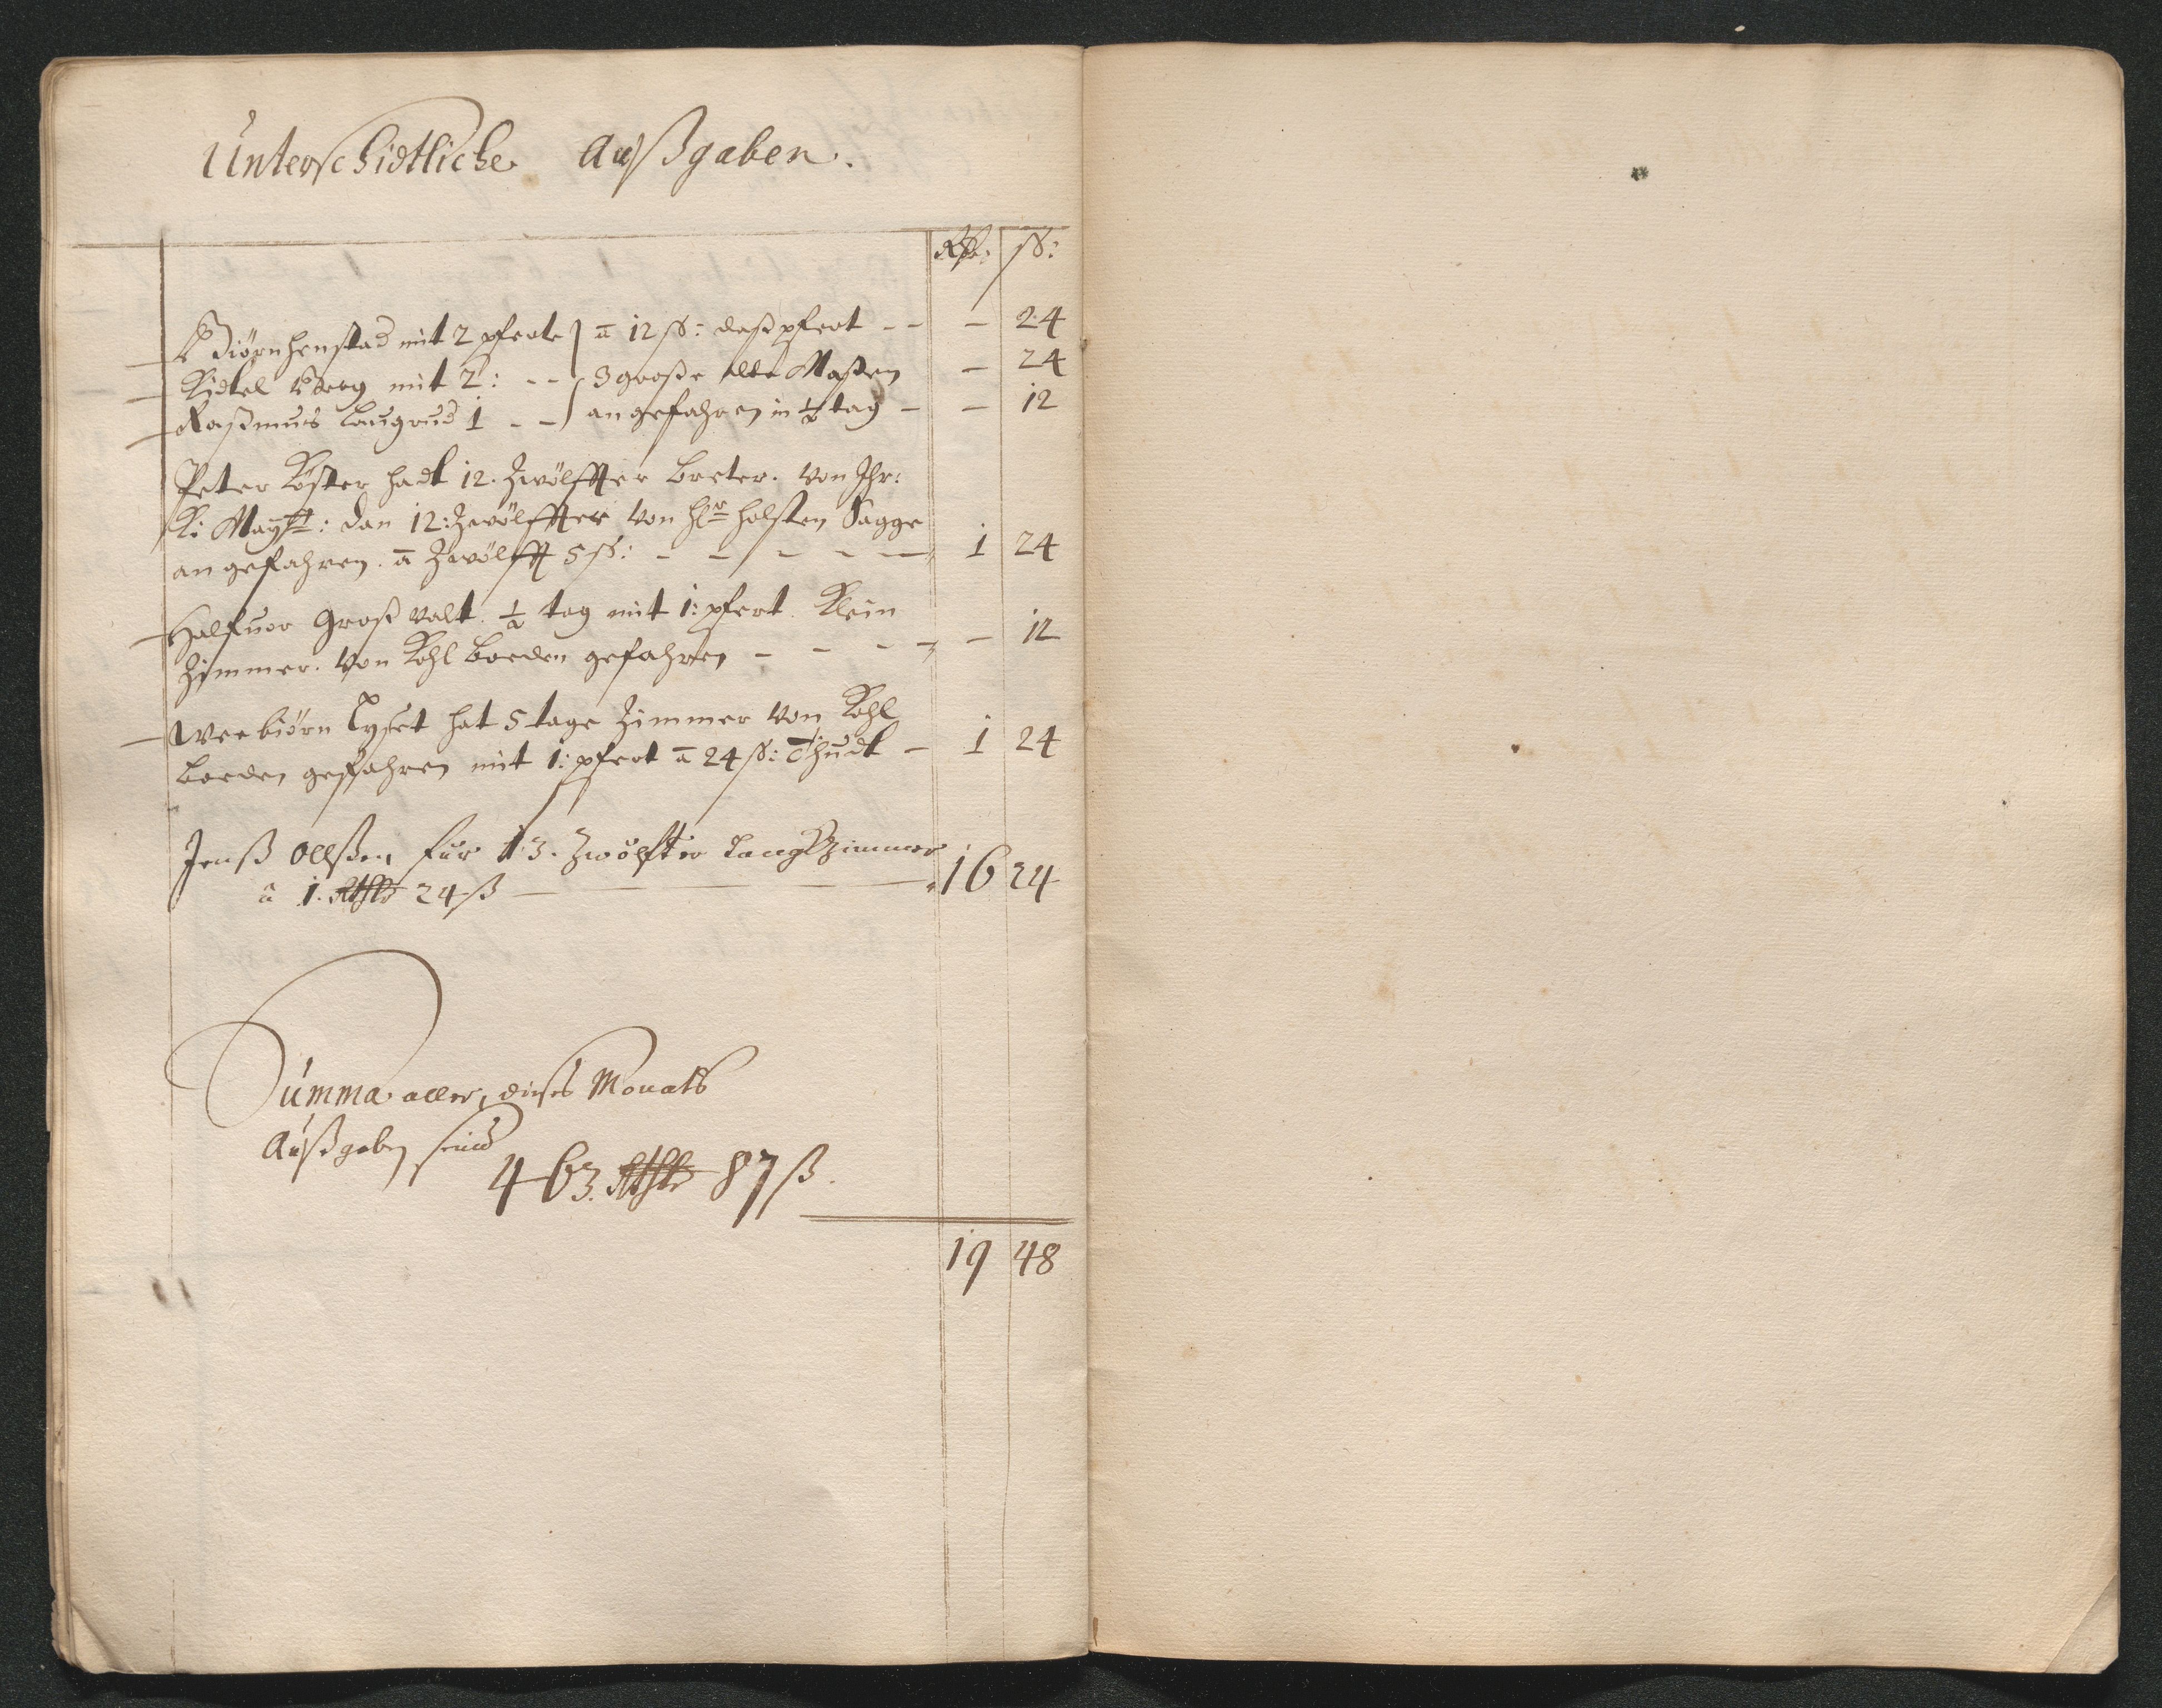 Unterschidtliche Außgaben.
Rthr: ß:
Biörn henstad mit 2 pferte } a 12 ß: daß pfert - - - 24
Kidtel Berg mit 2: - - } 3 große alte Maßen - 24
Raßmus Laugrud 1 - - } angefahren in ½ tag - - 12
Peter Köster hadt 12. Zwölffter breter. von Ihr:
K: Maytt: dan 12: Zwölffter von Hr holsten Sagge
angefahren. a Zwölfft 5 ß: - - - - - 1 24
Halfuor Groß valt. ½ tag mit 1: pfert Klein
Zimmer. von Kohl boeden gefahren - - - - - 12
Weebiörn Tyset hat 5 tage Zimmer von Kohl
boeden gefahren mit 1: pfert a 24 ß: Thudt - 1 24
Jenß Ollßen für 13. Zwölfter Langkzimmer
a 1. Rthlr 24 ß - 16 24
Summa aller, dießes Monats
Außgaben seind
463. Rthlr 87 ß.
19 48